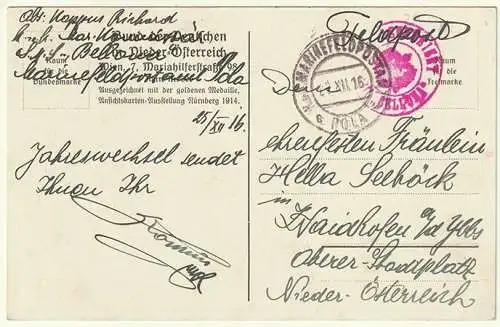 Abt: Kappus Richard
Bund der Deutschen
in Nieder-Österreich
Wien, 7. Mariahilferstraße 98.
Raum
für die
Bundesmarke
Marinefeldpostamt Pola
Ausgezeichnet mit der goldenen Medaille,
Ansichtskarten-Ausstellung Nürnberg 1914.
25/XII 16.
Jahreswechsel sendet
Ihnen Ihr
Feldpost
MARINEFELDPOSTAMT
XII.16
POLA
Raum
für die
Freimarke
Dem
ehrenfesten Fräulein
Hella Seeböck
in
Waidhofen a/d Ybbs
Oberer-Stadtplatz
Nieder-Österreich